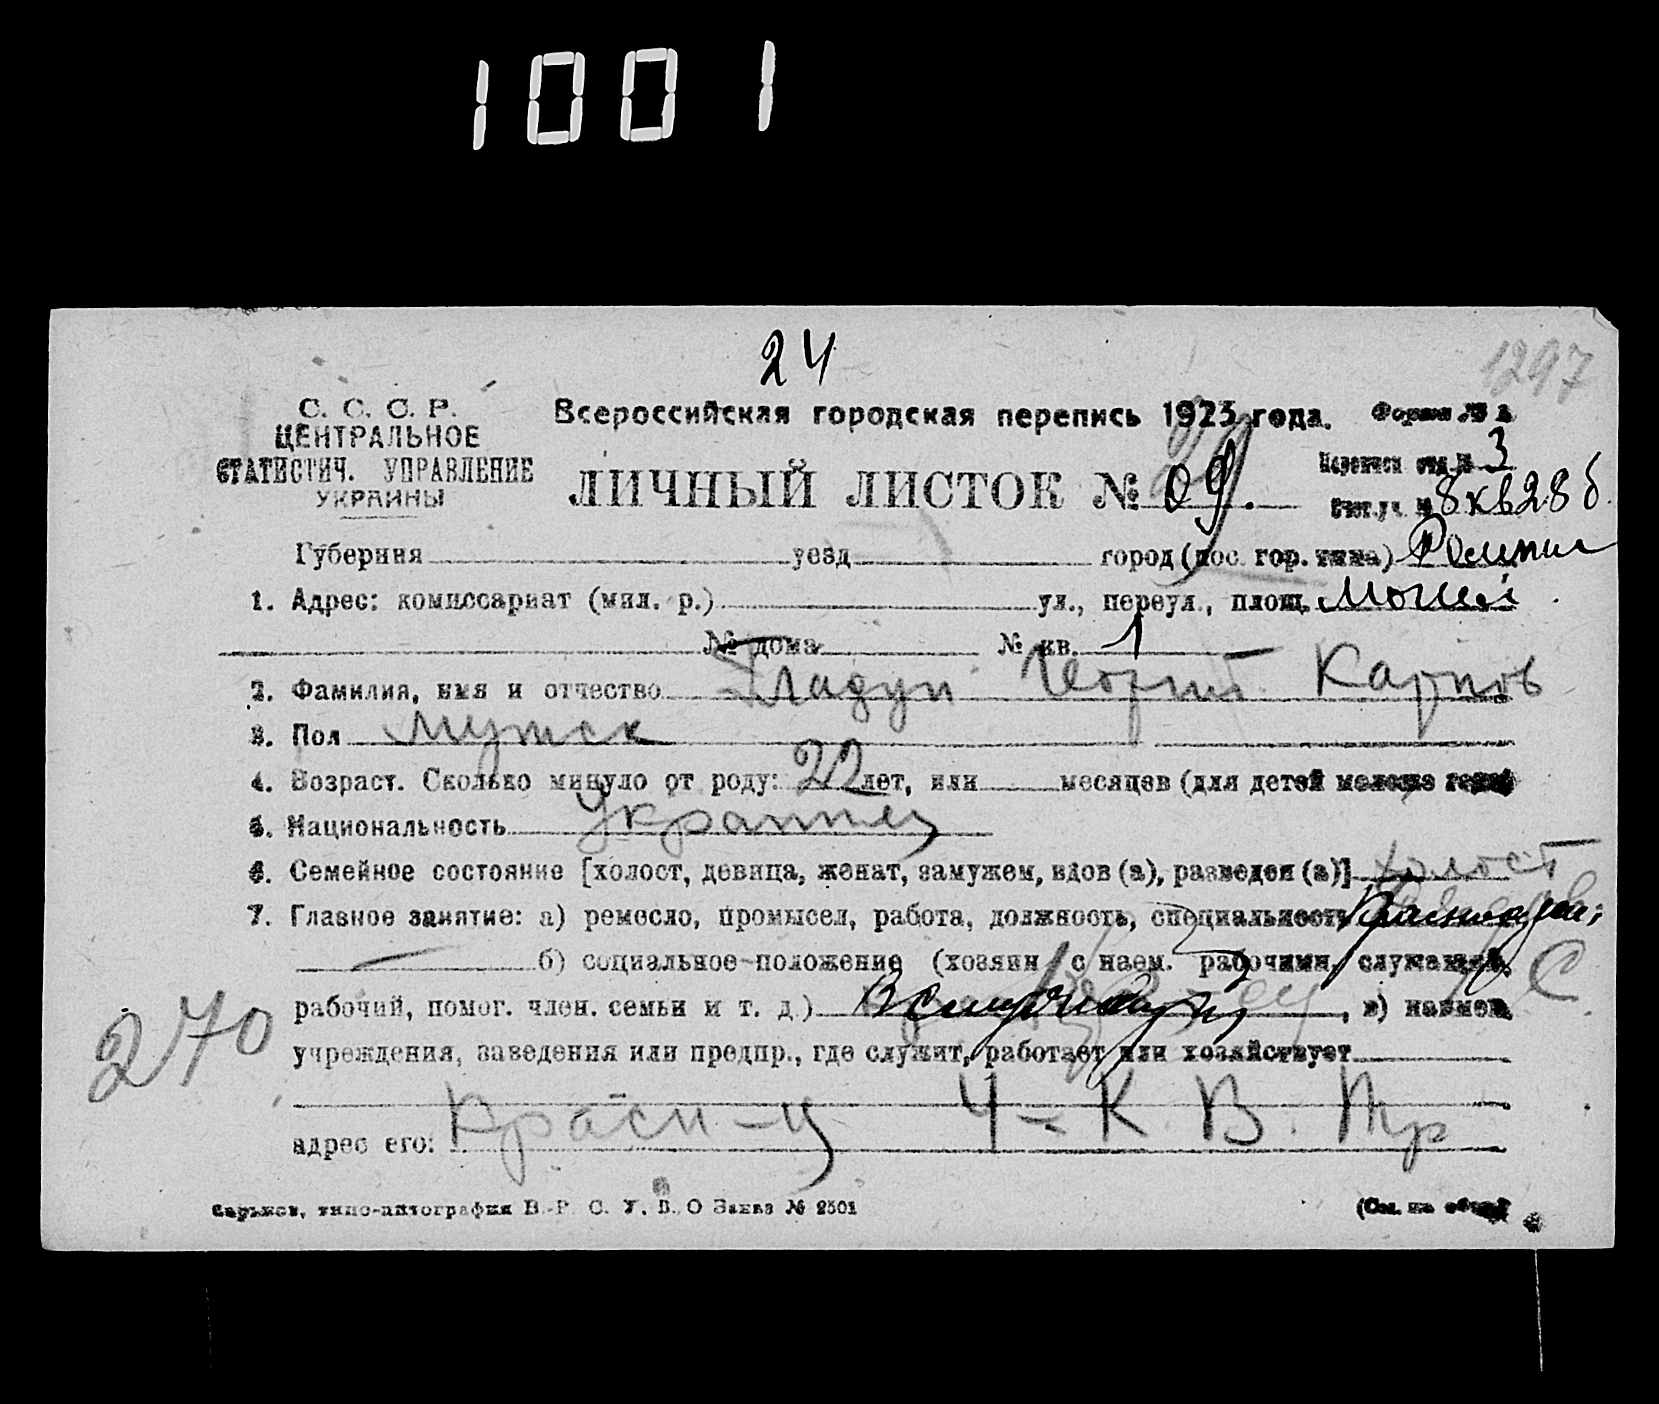 1001
24
1297
С. С. С. Р.
ЦЕНТРАЛЬНОЕ
СТАТИСТИЧ. УПРАВЛЕНИЕ
УКРАИНЫ
Всероссийская городская перепись 1923 года.
Форма № 2
ЛИЧНЫЙ ЛИСТОК № 09.
3
8 кв 28 б.
Губерния уезд город (пос. гор. типа)
1. Адрес: комиссариат (мил. р.) ул., переул., площ.
№ дома № кв. 1
2. Фамилия, имя и отчество Гладун Георгий Карпов
3. Пол мужск
4. Возраст. Сколько минуло от роду: 22 лет, или месяцев (для детей моложе года)
5. Национальность Украинец
6. Семейное состояние [холост, девица, женат, замужем, вдов (а), разведен (а)] холост
7. Главное занятие: а) ремесло, промысел, работа, должность, специальность
б) социальное положение (хозяин с наем. рабочими, служащий, С
рабочий, помог. член. семьи и т. д.) , в) наимен.
270
учреждения, заведения или предпр., где служит, работает или хозяйствует
адрес его: Красн-ц 4-К. В. Тр
Харьков, типо-литография В. Р. С. У. В. О Заказ № 2501
(См. на обор.)